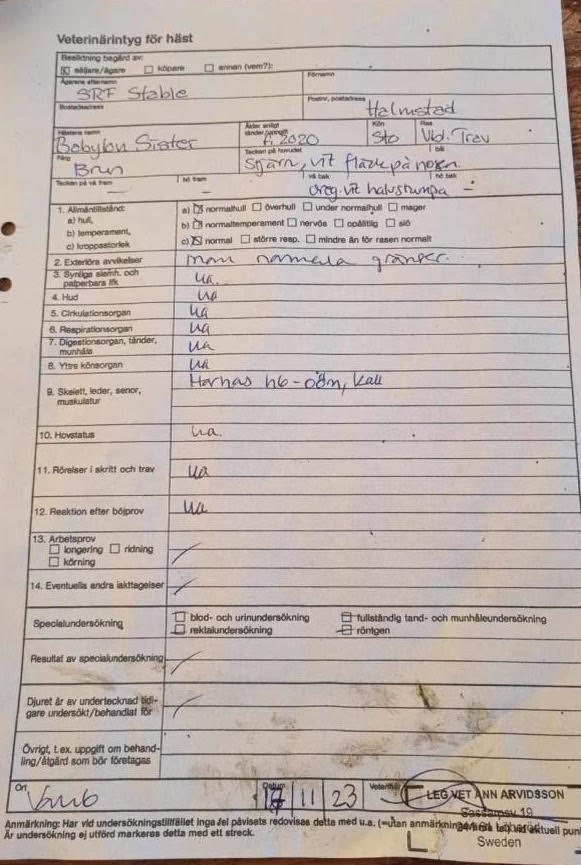 Veterinärintyg för häst
Besiktning begärd av:
säljare/ägare köpare annan (vem?):
Ägarens efternamn Förnamn
SRF Stable
Bostadsadress Postnr, postadress
Halmstad
Hästens namn Ålder enligt tänder/uppgift Kön Ras
Babylon Sister f. 2020 Sto Vbl. Trav
Färg Tecken på huvudet
Brun Stjärn, vit fläck på nosen
Tecken på vä fram hö fram vä bak hö bak
— — oreg. vit halvstrumpa —
1. Allmäntillstånd: a) normalhull överhull under normalhull mager
a) hull,
b) temperament, b) normaltemperament nervös opålitlig slö
c) kroppsstorlek c) normal större resp. mindre än för rasen normalt
2. Exteriöra avvikelser inom normala gränser.
3. Synliga slemh. och palperbara lfk ua.
4. Hud ua
5. Cirkulationsorgan ua
6. Respirationsorgan ua
7. Digestionsorgan, tänder, munhåla ua
8. Yttre könsorgan ua
9. Skelett, leder, senor, muskulatur Harhas hb - oöm, kall
10. Hovstatus ua.
11. Rörelser i skritt och trav ua
12. Reaktion efter böjprov ua
13. Arbetsprov
longering ridning
körning
14. Eventuella andra iakttagelser
Specialundersökning blod- och urinundersökning fullständig tand- och munhåleundersökning
rektalundersökning röntgen
Resultat av specialundersökning
Djuret är av undertecknad tidigare undersökt/behandlat för
Övrigt, t.ex. uppgift om behandling/åtgärd som bör företagas
Ort Datum Veterinär
11 23 LEG VET ANN ARVIDSSON
19
Sweden
Anmärkning: Har vid undersökningstillfället inga fel påvisats redovisas detta med u.a. (=utan anmärkning) vid aktuell punkt
Är undersökning ej utförd markeras detta med ett streck.